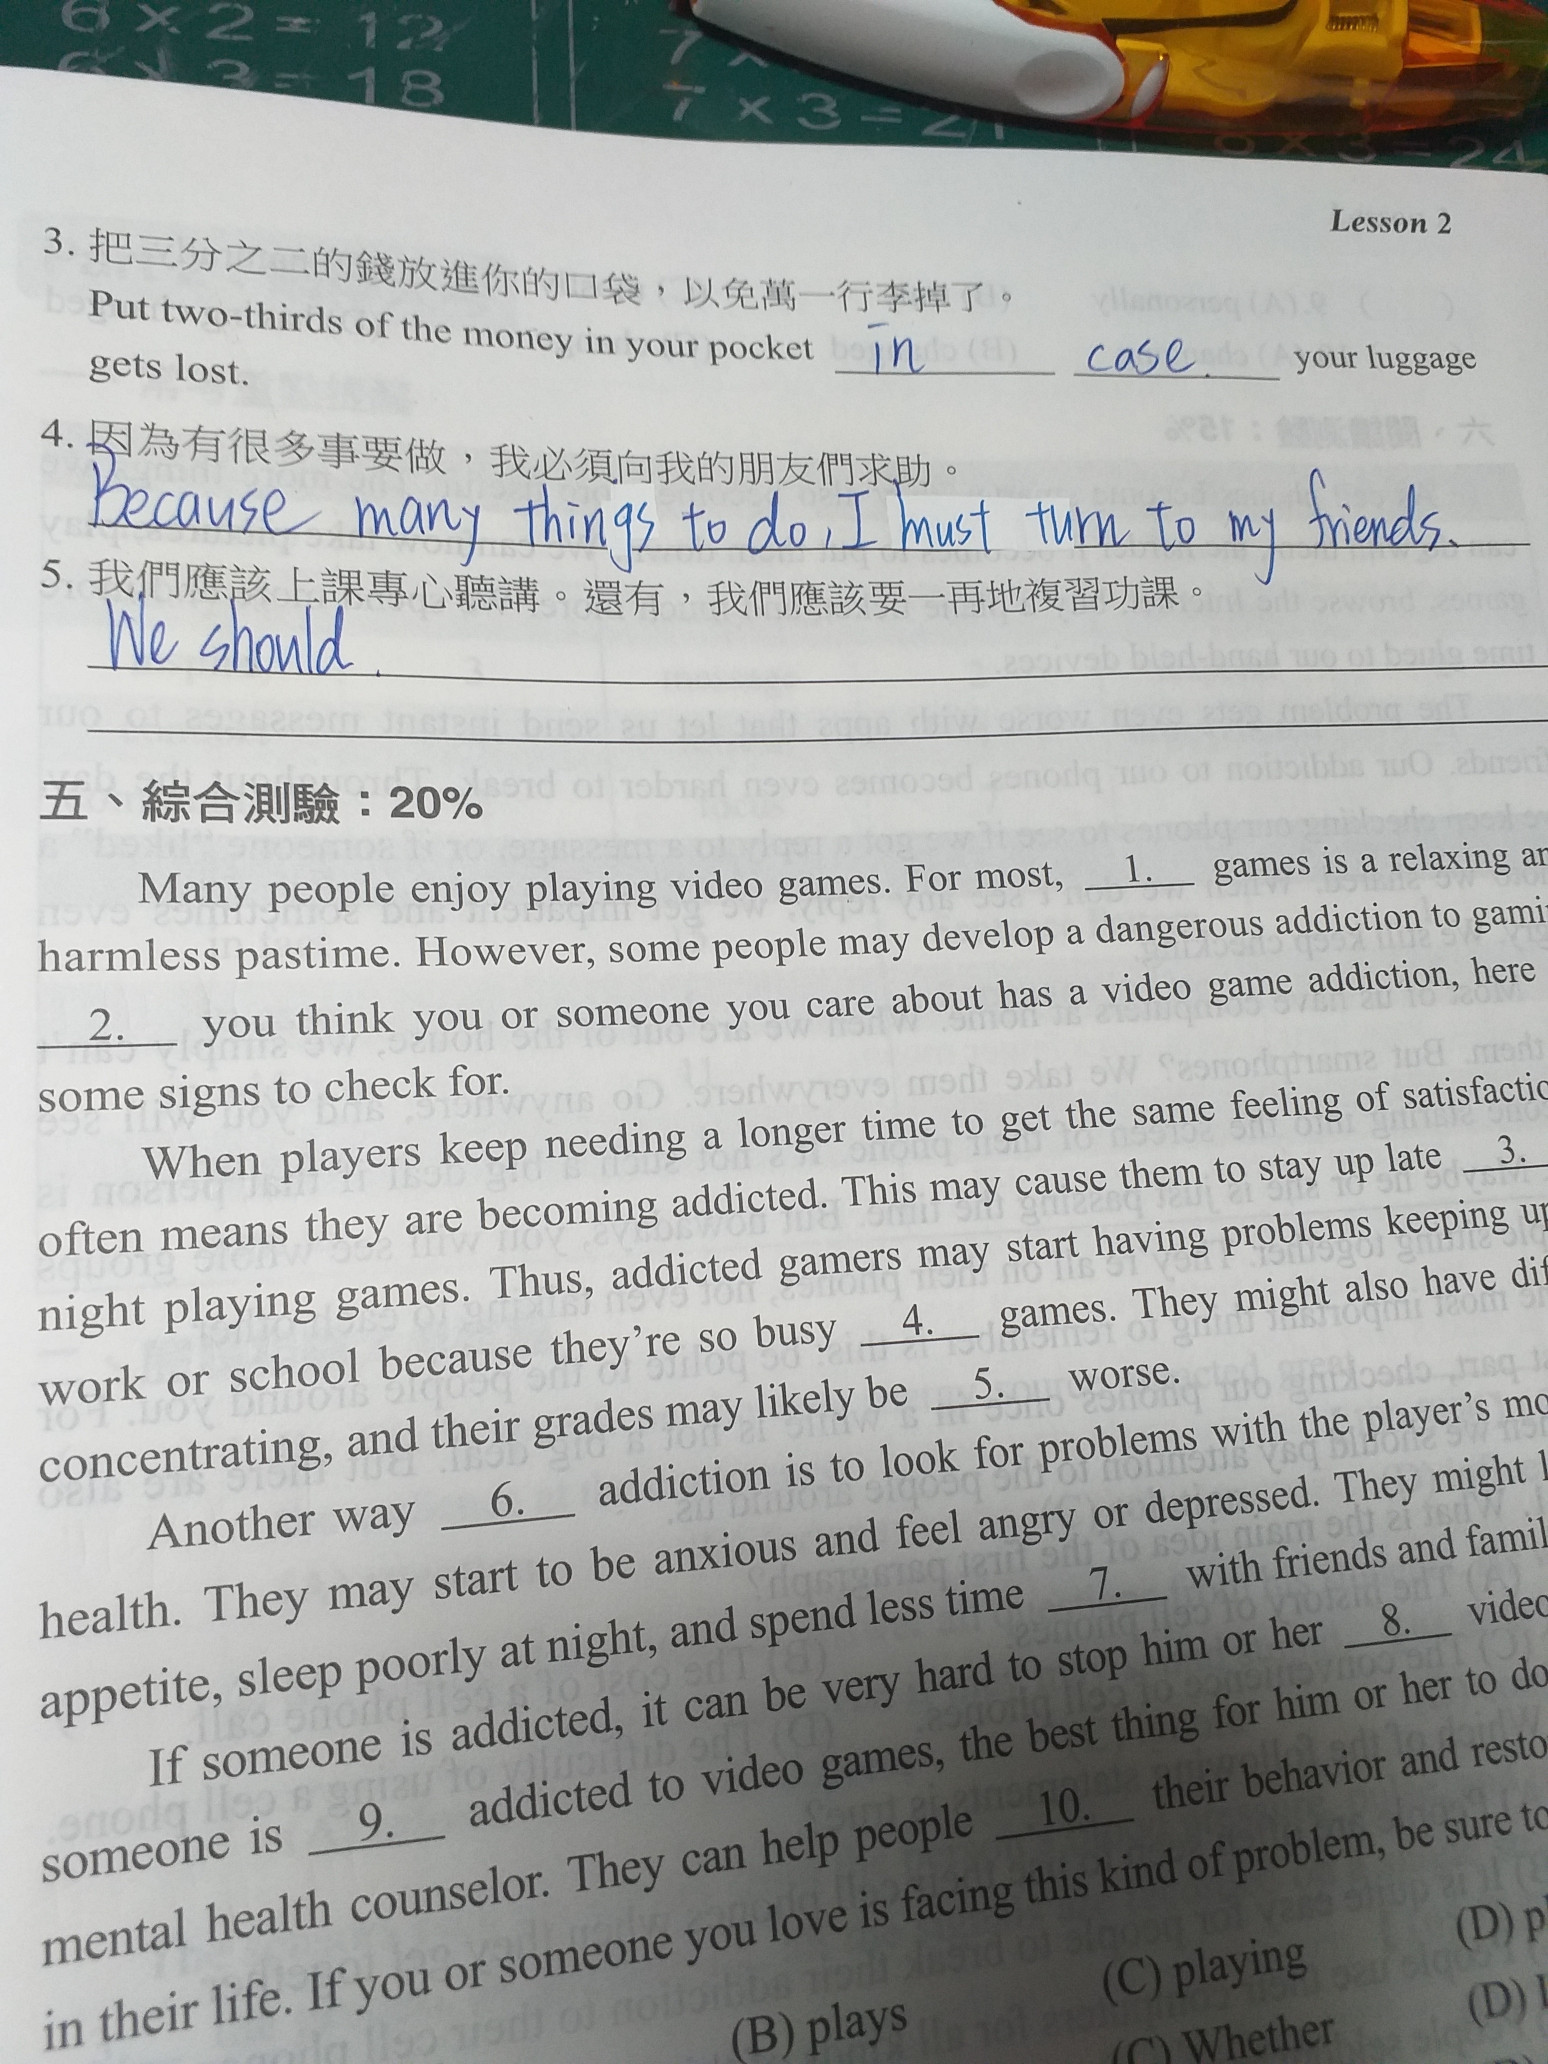 6 × 2 = 12
6 × 3 = 18
7 ×
7 × 3 = 21
6 × 3 = 24
Lesson 2
3. 把三分之二的錢放進你的口袋，以免萬一行李掉了。
Put two-thirds of the money in your pocket in case. your luggage
gets lost.
4. 因為有很多事要做，我必須向我的朋友們求助。
Because many things to do, I must turn to my friends.
5. 我們應該上課專心聽講。還有，我們應該要一再地複習功課。
We should.
五、綜合測驗：20%
Many people enjoy playing video games. For most, 1. games is a relaxing
harmless pastime. However, some people may develop a dangerous addiction to
2. you think you or someone you care about has a video game addiction, here
some signs to check for.
When players keep needing a longer time to get the same feeling of
often means they are becoming addicted. This may cause them to stay up late 3.
night playing games. Thus, addicted gamers may start having problems keeping
work or school because they're so busy 4. games. They might also have
concentrating, and their grades may likely be 5. worse.
Another way 6. addiction is to look for problems with the player's
health. They may start to be anxious and feel angry or depressed. They might
appetite, sleep poorly at night, and spend less time 7. with friends and
If someone is addicted, it can be very hard to stop him or her 8.
someone is 9. addicted to video games, the best thing for him or her to
mental health counselor. They can help people 10. their behavior and
in their life. If you or someone you love is facing this kind of problem, be sure
(B) plays (C) playing (D)
(C) Whether (D)